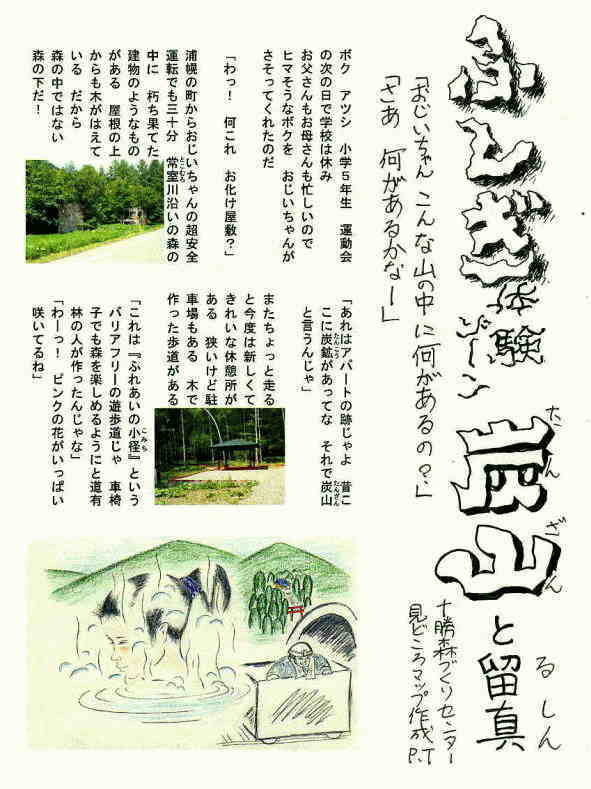 ふしぎ体験ゾーン 炭山と留真
たんざん
るしん
十勝森づくりセンター
見どころマップ作成P.T
「おじいちゃん こんな山の中に何があるの?」
「さあ 何があるかなー」
ボク アツシ 小学5年生 運動会
の次の日で学校は休み
お父さんもお母さんも忙しいので
ヒマそうなボクを おじいちゃんが
さそってくれたのだ
「わっ! 何これ お化け屋敷?」
浦幌の町からおじいちゃんの超安全
運転でも三十分 常室川沿いの森の
中に 朽ち果てた
建物のようなもの
がある 屋根の上
からも木がはえて
いる だから
森の中ではない
森の下だ!
「あれはアパートの跡じゃよ 昔こ
こに炭鉱があってな それで炭山
と言うんじゃ」
またちょっと走る
と今度は新しくて
きれいな休憩所が
ある 狭いけど駐
車場もある 木で
作った歩道がある
「これは『ふれあいの小径』という
バリアフリーの遊歩道じゃ 車椅
子でも森を楽しめるようにと道有
林の人が作ったんじゃな」
「わーっ! ピンクの花がいっぱい
咲いてるね」